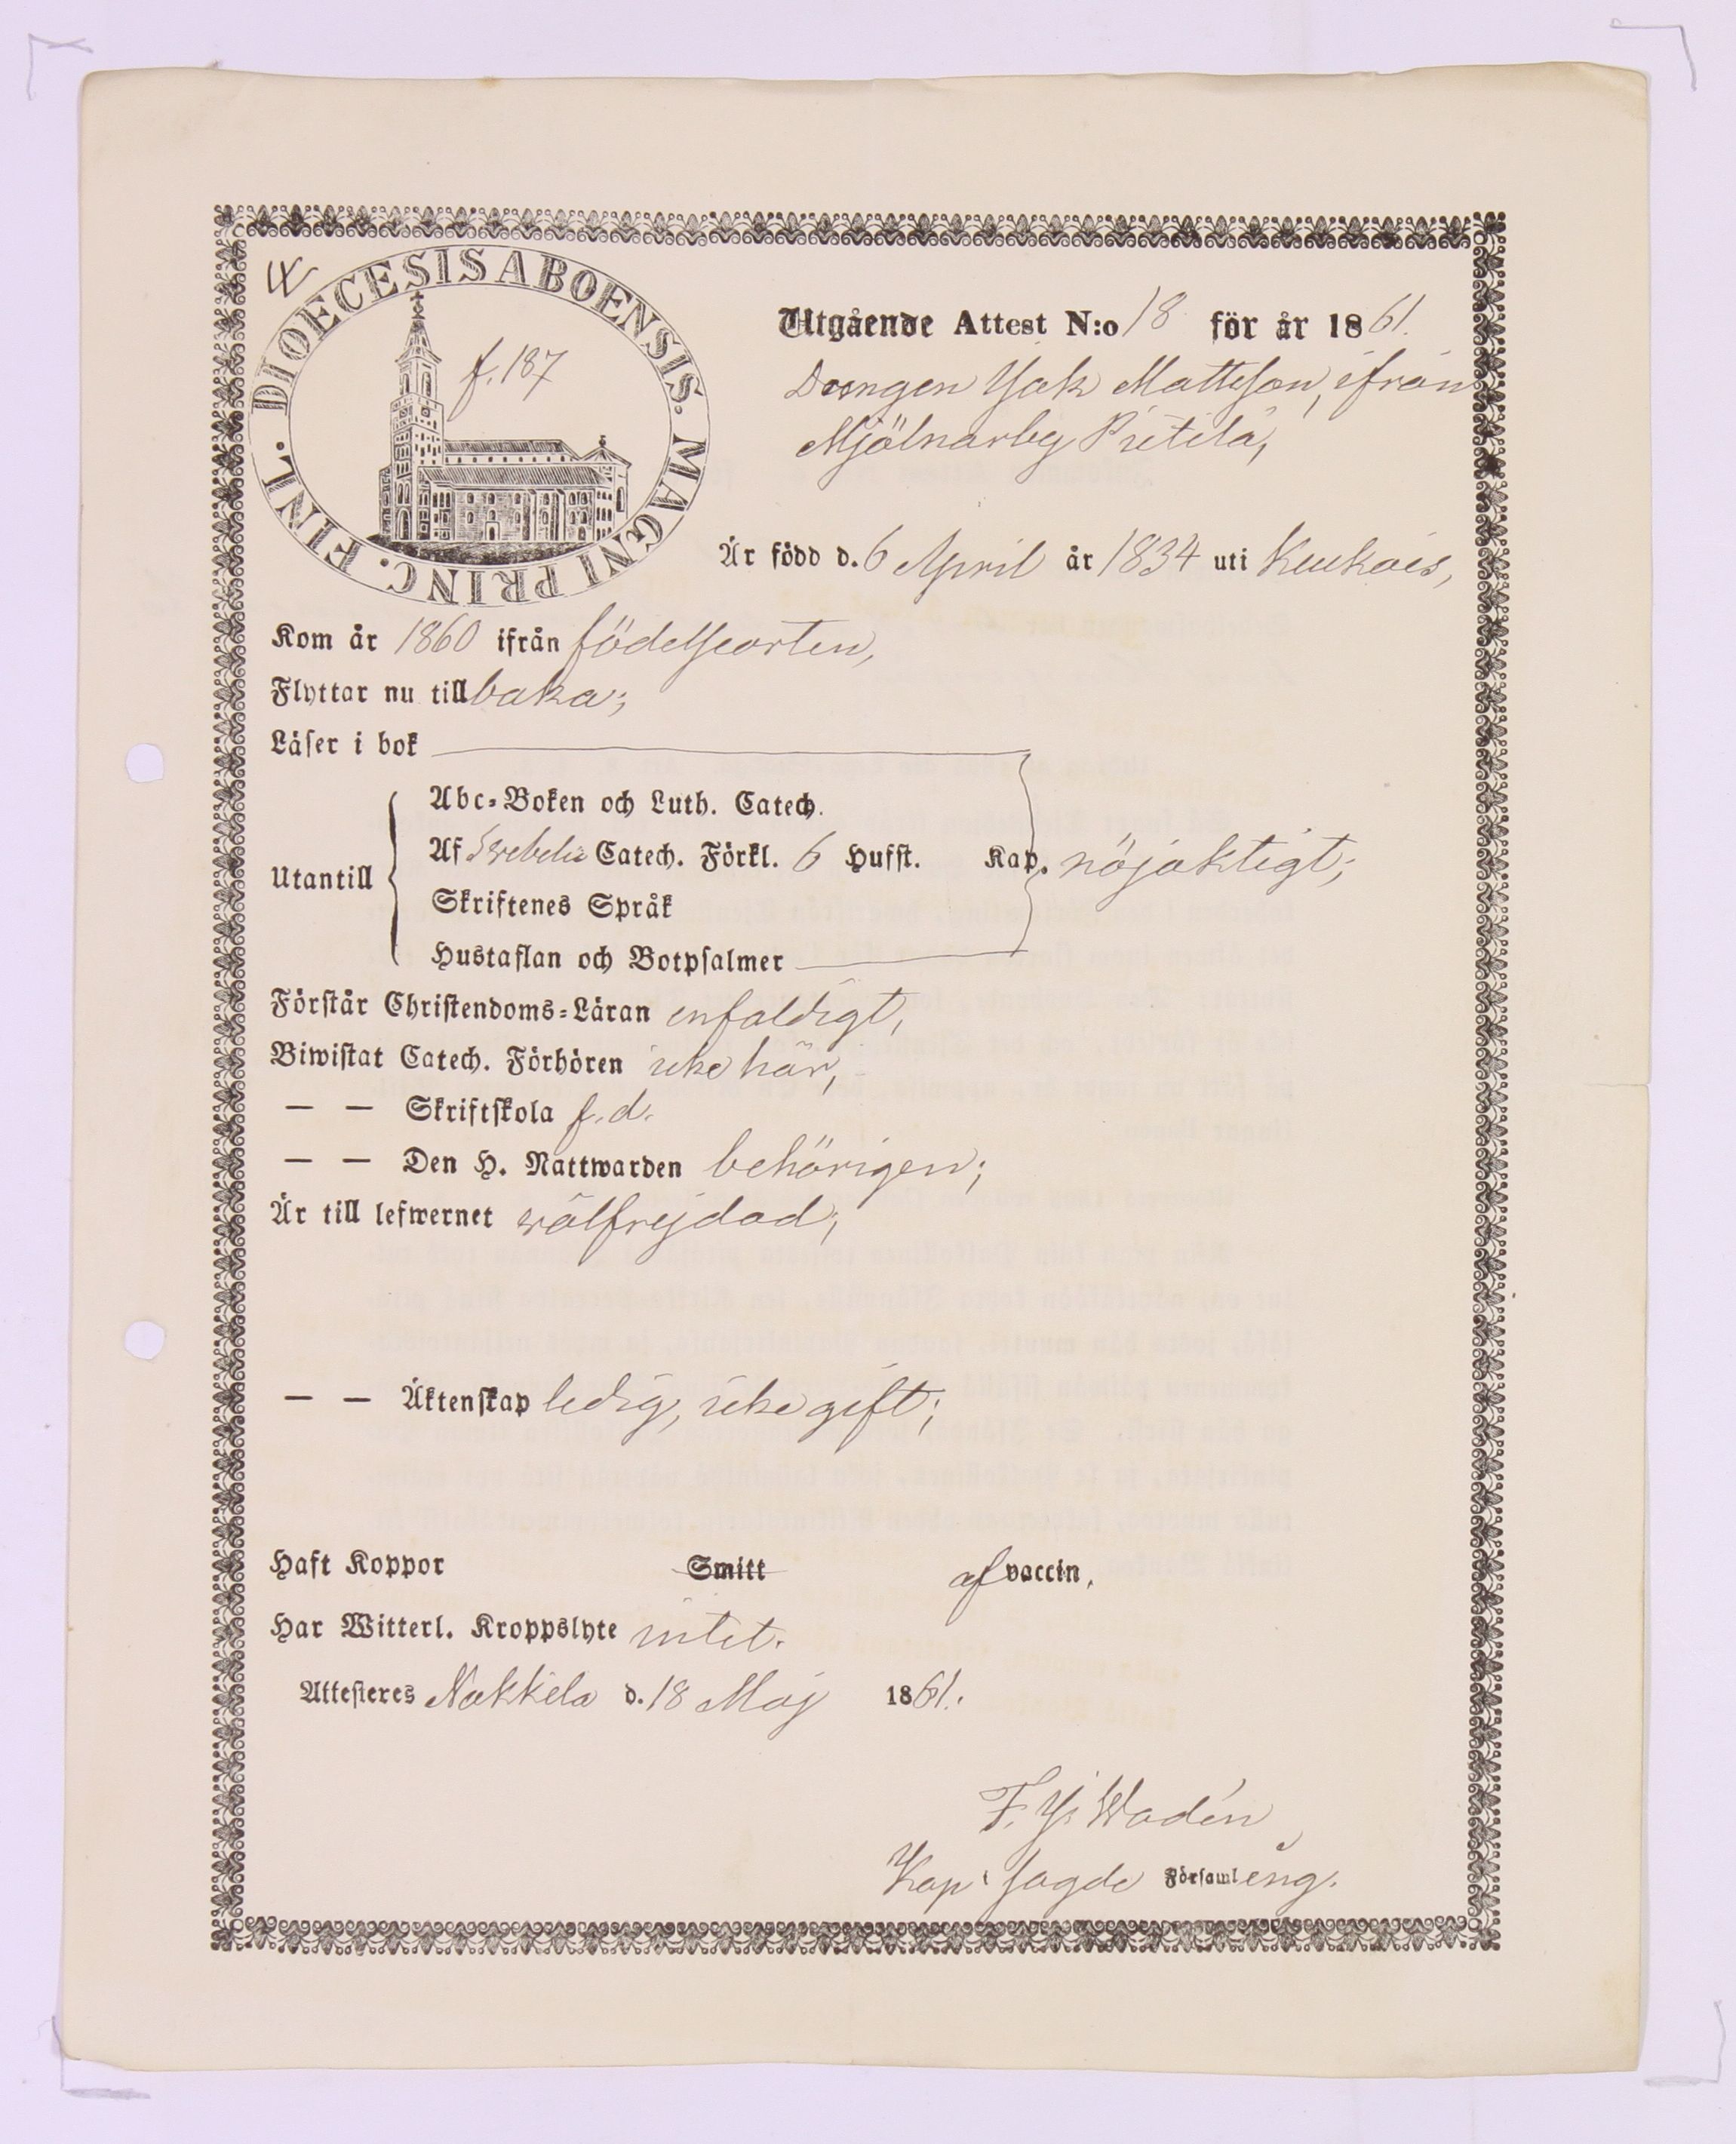 DIOECESIS ABOENSIS. MAGNI PRINC. FINL.
f. 187
Utgående Attest N:o 18 för år 1861.
Drengen Isak Mattsson, ifrån
Mjölnarby Pietilä,
Är född d. 6 April år 1834 uti Keukois,
Kom år 1860 ifrån födelseorten,
Flyttar nu tillbaka;
Läser i bok
Utantill
Abc-Boken och Luth. Catech.
Af Svebelii Catech. Förkl. 6 Hufst. Kap. nöjaktigt;
Skriftenes Språk
Hustaflan och Botpsalmer
Förstår Christendoms-Läran enfaldigt,
Biwistat Catech. Förhören icke här,
— — Skriftskola f. d.
— — Den H. Nattwarden behörigen;
Är till lefwernet wälfrejdad;
— — Äktenskap ledig, icke gift;
Haft Koppor Smitt af vaccin,
Har Witterl. Kroppslyte intet.
Attesteres Nakkila d. 18 Maj 1861.
F. I. Wadén
Kap. i sagde Församling.